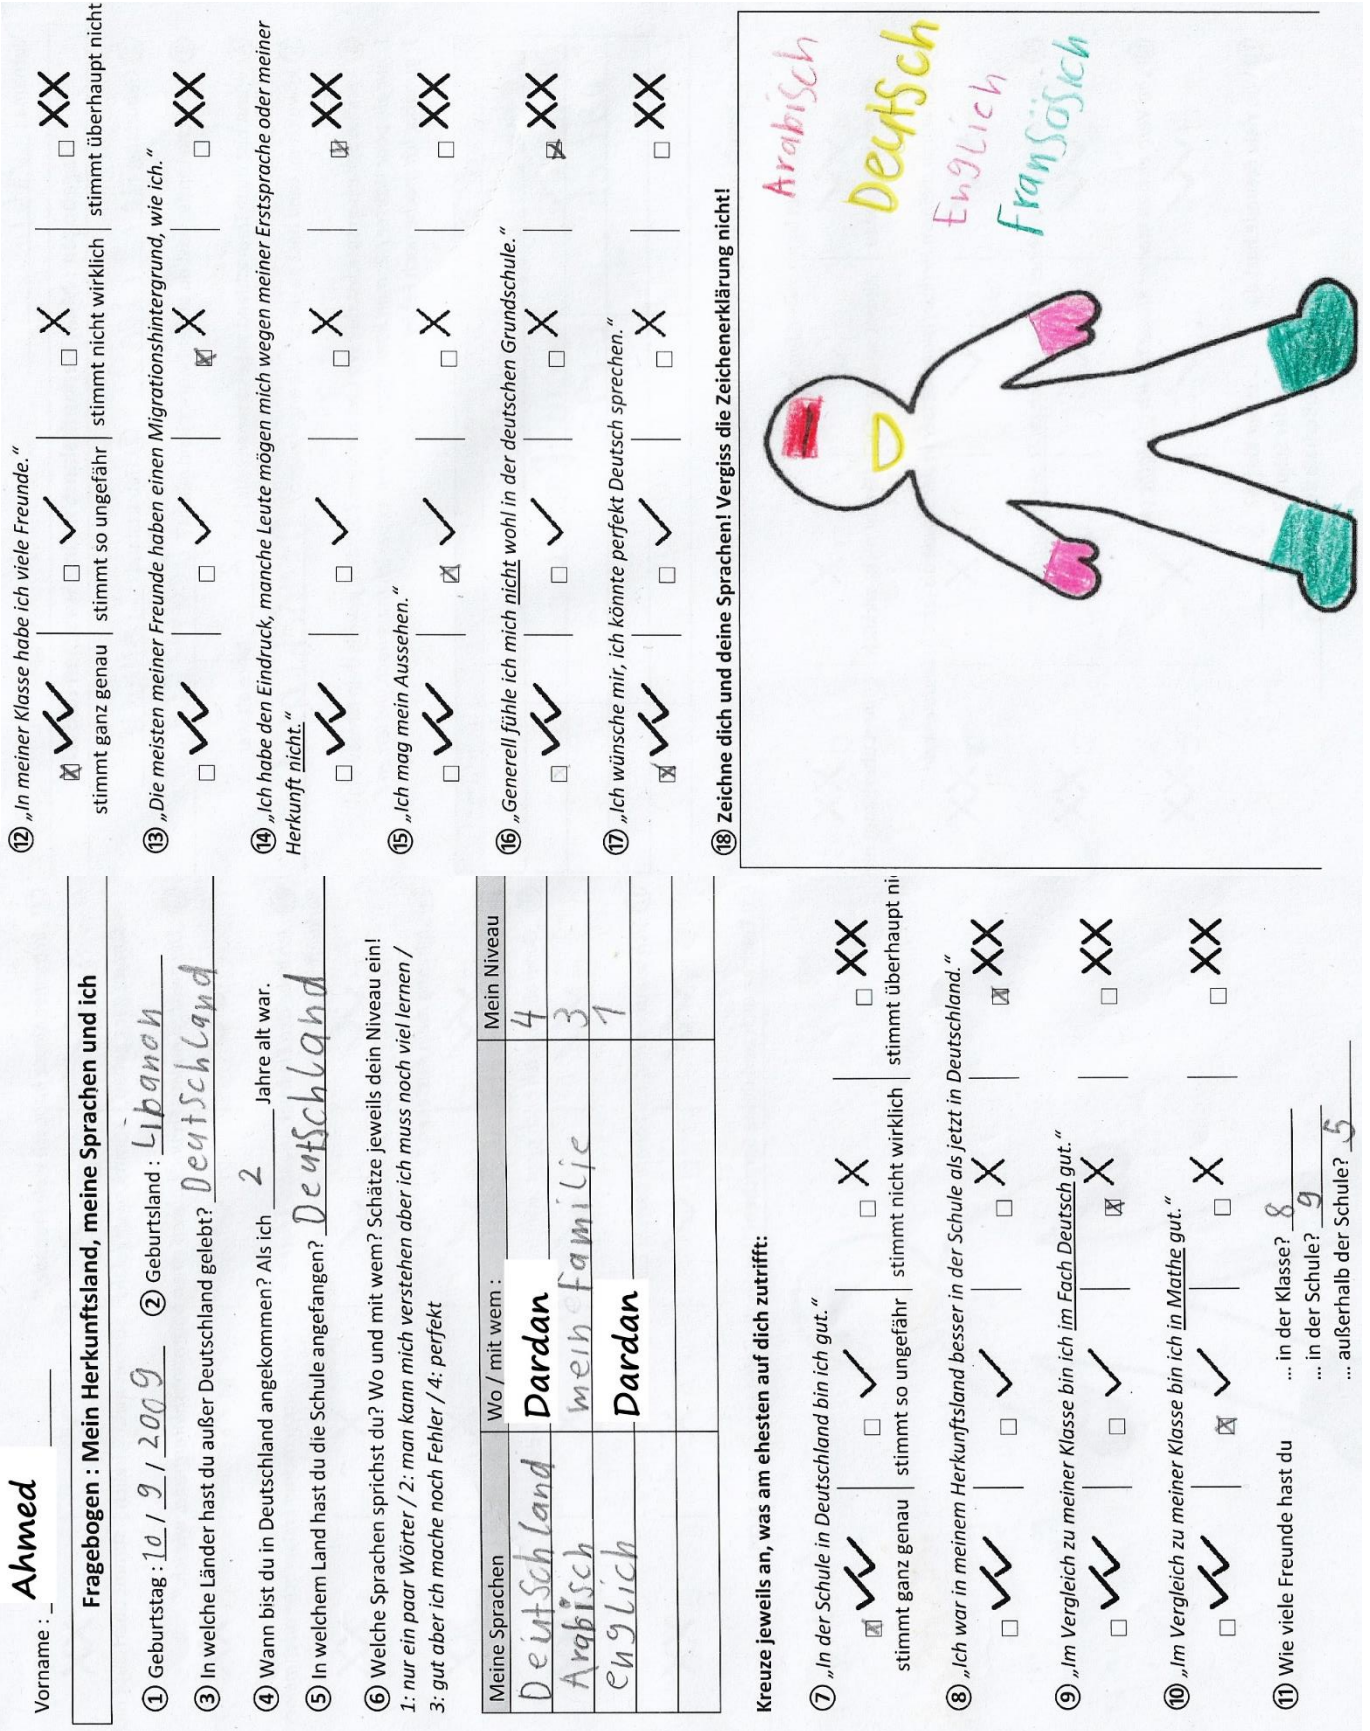 Vorname : Ahmed
Fragebogen : Mein Herkunftsland, meine Sprachen und ich
① Geburtstag : 10 / 9 / 2009 ② Geburtsland : Libanon
③ In welche Länder hast du außer Deutschland gelebt? Deutschland
④ Wann bist du in Deutschland angekommen? Als ich 2 Jahre alt war.
⑤ In welchem Land hast du die Schule angefangen? Deutschland
⑥ Welche Sprachen sprichst du? Wo und mit wem? Schätze jeweils dein Niveau ein!
1: nur ein paar Wörter / 2: man kann mich verstehen aber ich muss noch viel lernen /
3: gut aber ich mache noch Fehler / 4: perfekt
Meine Sprachen Wo / mit wem : Mein Niveau
Deutschland Dardan 4
Arabisch mein familie 3
englich Dardan 1
Kreuze jeweils an, was am ehesten auf dich zutrifft:
⑦ „In der Schule in Deutschland bin ich gut.“
stimmt ganz genau stimmt so ungefähr stimmt nicht wirklich stimmt überhaupt ni
⑧ „Ich war in meinem Herkunftsland besser in der Schule als jetzt in Deutschland.“
⑨ „Im Vergleich zu meiner Klasse bin ich im Fach Deutsch gut.“
⑩ „Im Vergleich zu meiner Klasse bin ich in Mathe gut.“
⑪ Wie viele Freunde hast du ... in der Klasse? 8
... in der Schule? 9
... außerhalb der Schule? 5
⑫ „In meiner Klasse habe ich viele Freunde.“
stimmt ganz genau stimmt so ungefähr stimmt nicht wirklich stimmt überhaupt nicht
⑬ „Die meisten meiner Freunde haben einen Migrationshintergrund, wie ich.“
⑭ „Ich habe den Eindruck, manche Leute mögen mich wegen meiner Erstsprache oder meiner
Herkunft nicht.“
⑮ „Ich mag mein Aussehen.“
⑯ „Generell fühle ich mich nicht wohl in der deutschen Grundschule.“
⑰ „Ich wünsche mir, ich könnte perfekt Deutsch sprechen.“
⑱ Zeichne dich und deine Sprachen! Vergiss die Zeichenerklärung nicht!
Arabisch
Deutsch
Englich
Fransösich